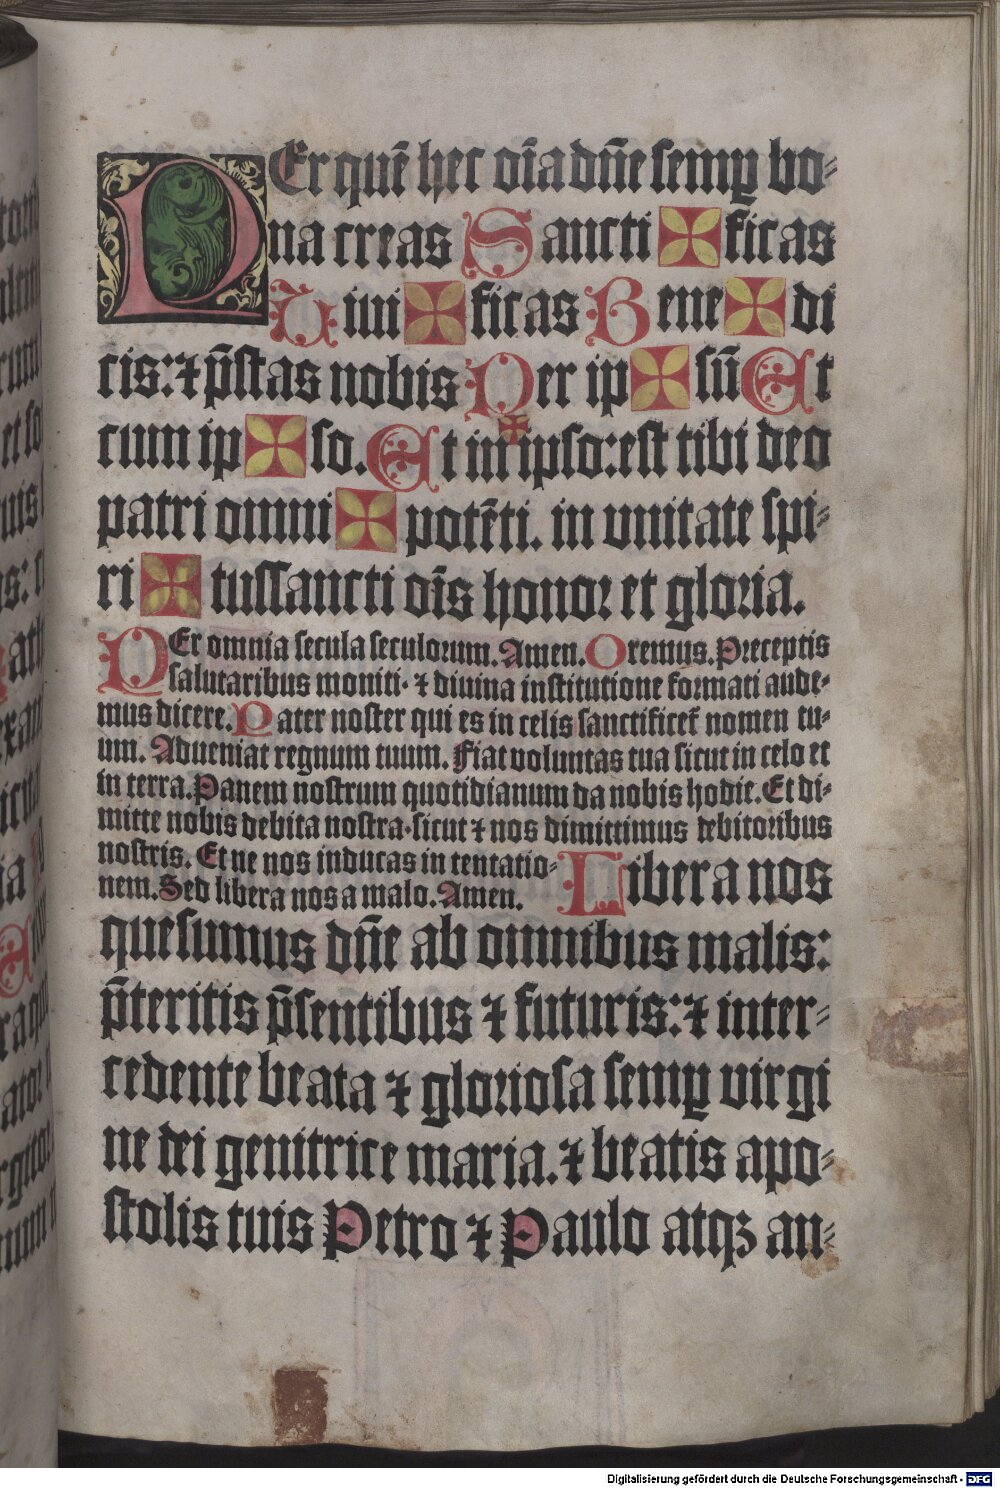 PEr quē hec oīa dn̄e semꝑ bo⸗
na creas Sancti ✠ ficas
Uiui ✠ ficas Bene ✠ di
cis: ⁊ p̄stas nobis Per ip ✠ sū Et
cum ip ✠ so. Et in ✠ ipso: est tibi deo
patri omni ✠ potēti. in vnitate spi⸗
ri ✠ tussancti oīs honoꝛ et gloꝛia.
PEr omnia secula seculoꝛum. Amen. Oremus. Preceptis
salutaribus moniti· ⁊ diuina institutione foꝛmati aude⸗
mus dicere. Pater noster qui es in celis sanctificet᷑ nomen tu⸗
um. Adueniat regnum tuum. Fiat voluntas tua sicut in celo et
in terra. Panem nostrum quotidianum da nobis hodie. Et di⸗
mitte nobis debita nostra· sicut ⁊ nos dimittimus debitoꝛibus
nostris. Et ne nos inducas in tentatio⸗
nem. Sed libera nos a malo. Amen. Libera nos
quesumus dn̄e ab omnibus malis:
p̄teritis p̄sentibus ⁊ futuris: ⁊ inter⸗
cedente beata ⁊ gloꝛiosa semꝑ virgi
ne dei genitrice maria. ⁊ beatis apo⸗
stolis tuis Petro ⁊ Paulo atqꝫ an⸗
Digitalisierung gefördert durch die Deutsche Forschungsgemeinschaft - DFG